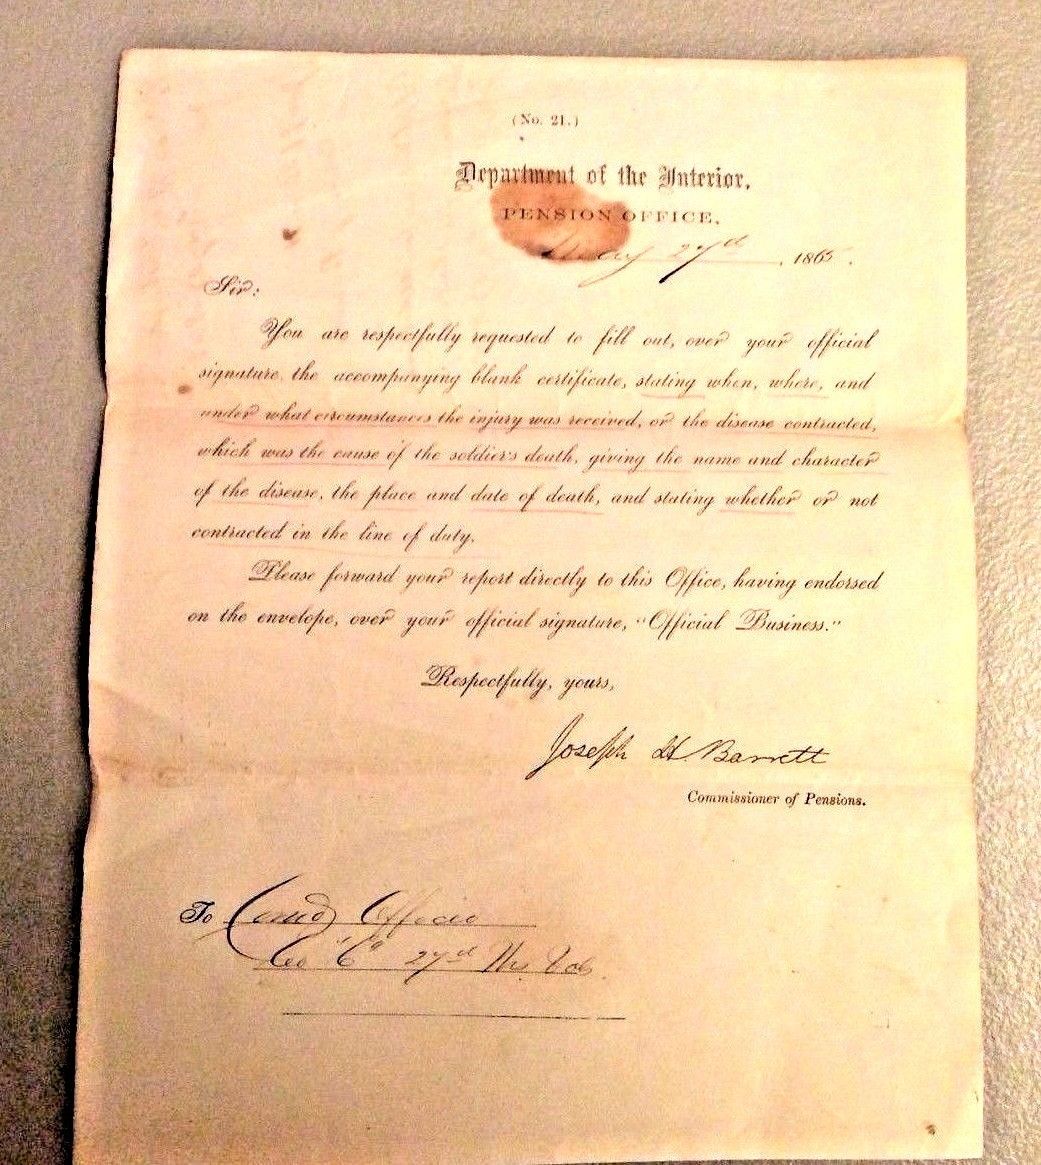 (No. 21.)
Department of the Interior,
PENSION OFFICE,
May 27th, 1865.
Sir:
You are respectfully requested to fill out, over your official
signature, the accompanying blank certificate, stating when, where, and
under what circumstances the injury was received, or the disease contracted,
which was the cause of the soldier's death, giving the name and character
of the disease, the place and date of death, and stating whether or not
contracted in the line of duty.
Please forward your report directly to this Office, having endorsed
on the envelope, over your official signature, "Official Business."
Respectfully, yours,
Joseph H. Barrett
Commissioner of Pensions.
To Comdg Officer
Co "C" 27th Vols.